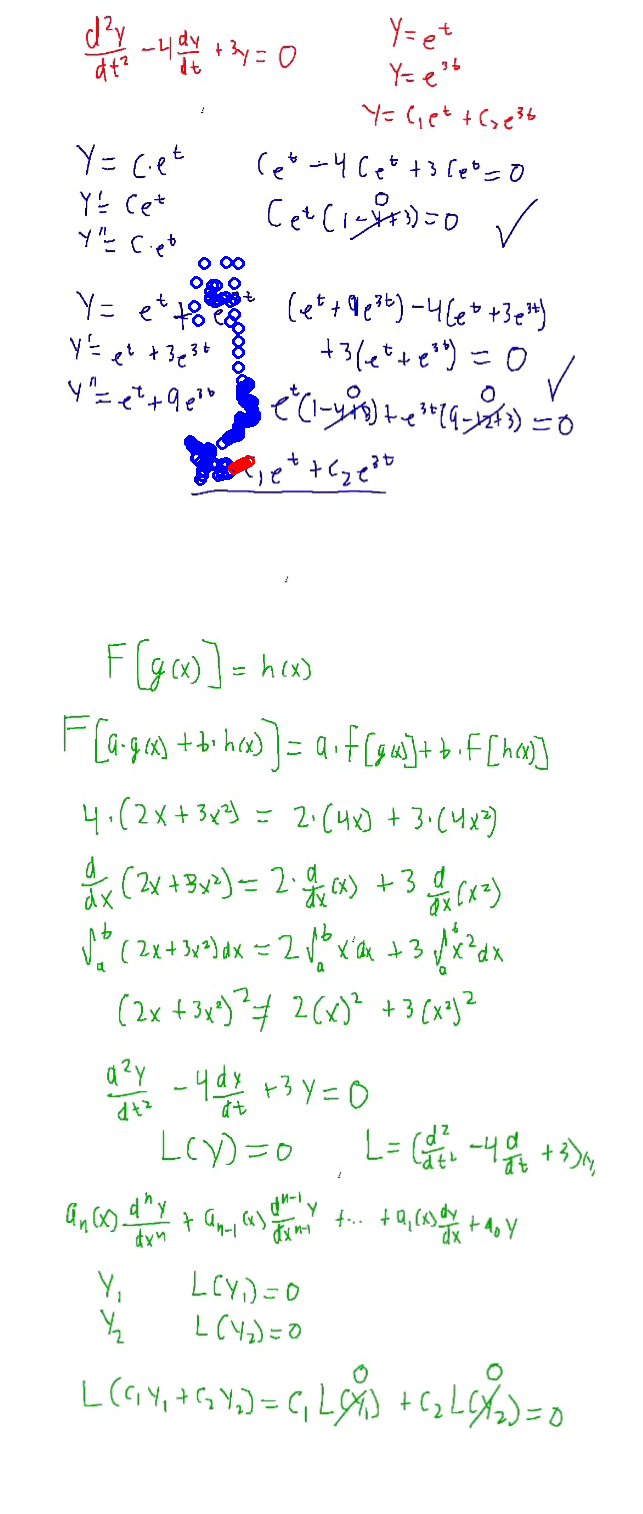 d²y/dt² - 4 dy/dt + 3y = 0
y = e^t
y = e^3t
y = c₁e^t + c₂e^3t
y = c·e^t
Ce^t - 4Ce^t + 3Ce^t = 0
y' = Ce^t
Ce^t(1-4+3) = 0 ✓
0
y'' = C·e^t
y = e^t + e^3t
(e^t + 9e^3t) - 4(e^t + 3e^3t)
y' = e^t + 3e^3t
+3(e^t + e^3t) = 0 ✓
y'' = e^t + 9e^3t
0 0
e^t(1-4+3) + e^3t(9-12+3) = 0
c₁e^t + c₂e^3t
F[g(x)] = h(x)
F[a·g(x) + b·h(x)] = a·F[g(x)] + b·F[h(x)]
4·(2x + 3x²) = 2·(4x) + 3·(4x²)
d/dx (2x + 3x²) = 2·d/dx (x) + 3 d/dx (x²)
∫_a^b (2x + 3x²)dx = 2∫_a^b x dx + 3∫_a^b x² dx
(2x + 3x²)² ≠ 2(x)² + 3(x²)²
d²y/dt² - 4 dy/dt + 3y = 0
L(y) = 0 L = (d²/dt² - 4 d/dt + 3)y
a_n(x) d^n y/dx^n + a_n-1(x) d^n-1 y/dx^n-1 + ... + a₁(x) dy/dx + a₀ y
y₁ L(y₁) = 0
y₂ L(y₂) = 0
0 0
L(c₁y₁ + c₂y₂) = c₁L(y₁) + c₂L(y₂) = 0